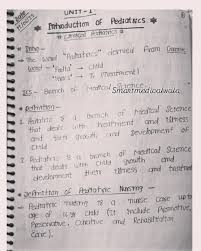 UNIT - 1
Introduction of Pediatrics
Intro -
The word "Pediatrics" derived from
word - "Pedia" → Child
→ (Treatment)
Branch of Medical Science
Smartmedicalwala
Definition -
1. Pediatric is a branch of Medical Science
that deals with treatment and illness
and with Growth and Development of
Child
2. Pediatric is a branch of Medical Science
that deals with child growth and
development their illness and
treatment
Definition of Pediatric Nursing -
Pediatric nursing is a nurse care up to
age of child (It include Promotive,
Preventive, Curative and Rehabilitative
Care).